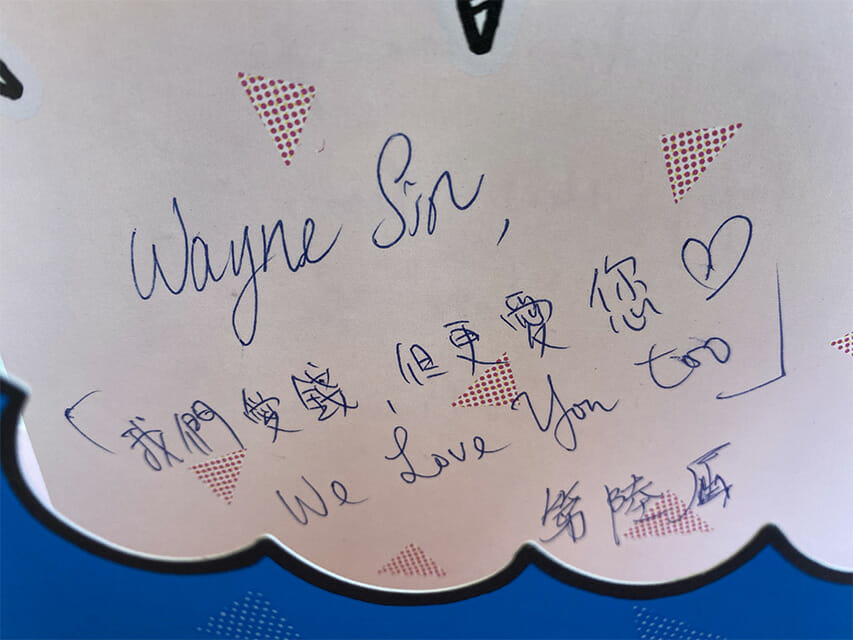 Wayne Sin,
「我們愛錢,但更愛您♡
We Love You too」
第陸